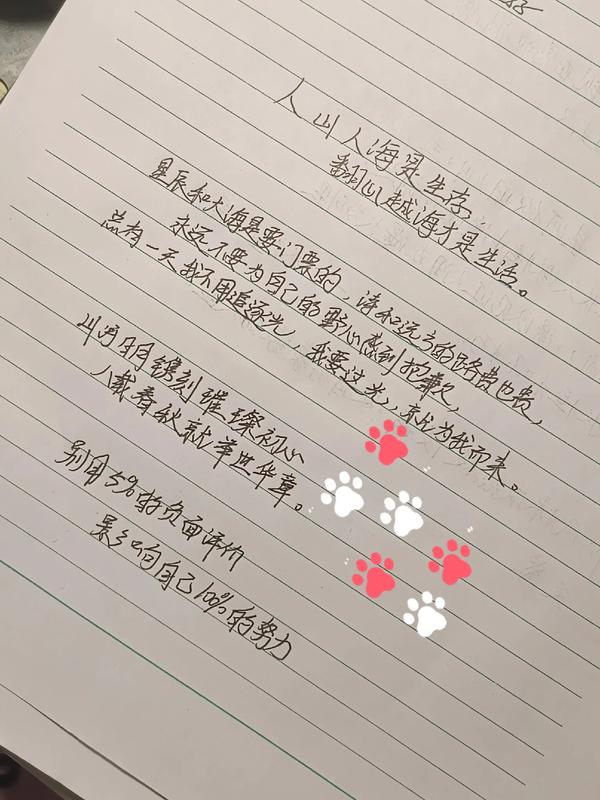 人山人海是生存,
翻山越海才是生活。
星辰和大海是要门票的,诗和远方的路费也贵,
永远不要为自己的野心感到抱歉,
总有一天我不用追逐光,我要这光,亦为我而来。
叫河月镌刻璀璨初心
八载春秋就举世华章。
别用5%的负面评价
影响自己100%的努力